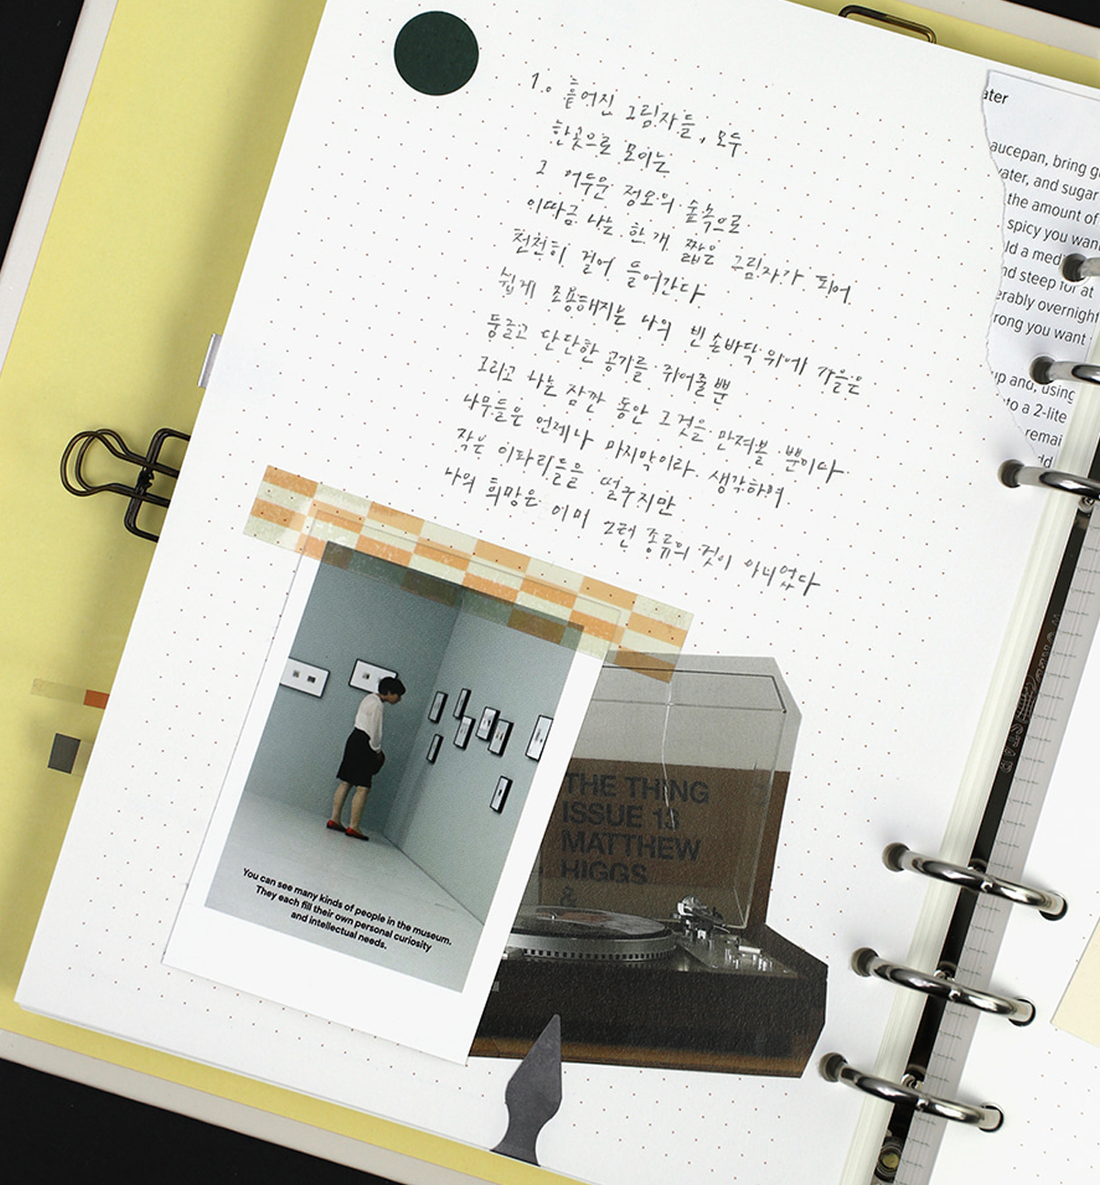 1. 흩어진 그림자들, 모두
한곳으로 모이는
그 어두운 정오의 숲속으로
이따금 나는 한 개 짧은 그림자가 되어
천천히 걸어 들어간다
쉽게 조용해지는 나의 빈 손바닥 위에 가을은
둥글고 단단한 공기를 쥐어줄 뿐
그리고 나는 잠깐 동안 그것을 만져볼 뿐이다
나무들은 언제나 마지막이라 생각하며
작은 이파리들을 떨구지만
나의 희망은 이미 그런 종류의 것이 아니었다
ater
aucepan, bring
ater, and sugar
the amount of
spicy you want
ld a med
nd steep for at
erably overnight
rong you want
up and, using
to a 2-lite
remai
dd
THE THING
ISSUE 13
MATTHEW
HIGGS
&
You can see many kinds of people in the museum.
They each fill their own personal curiosity
and intellectual needs.